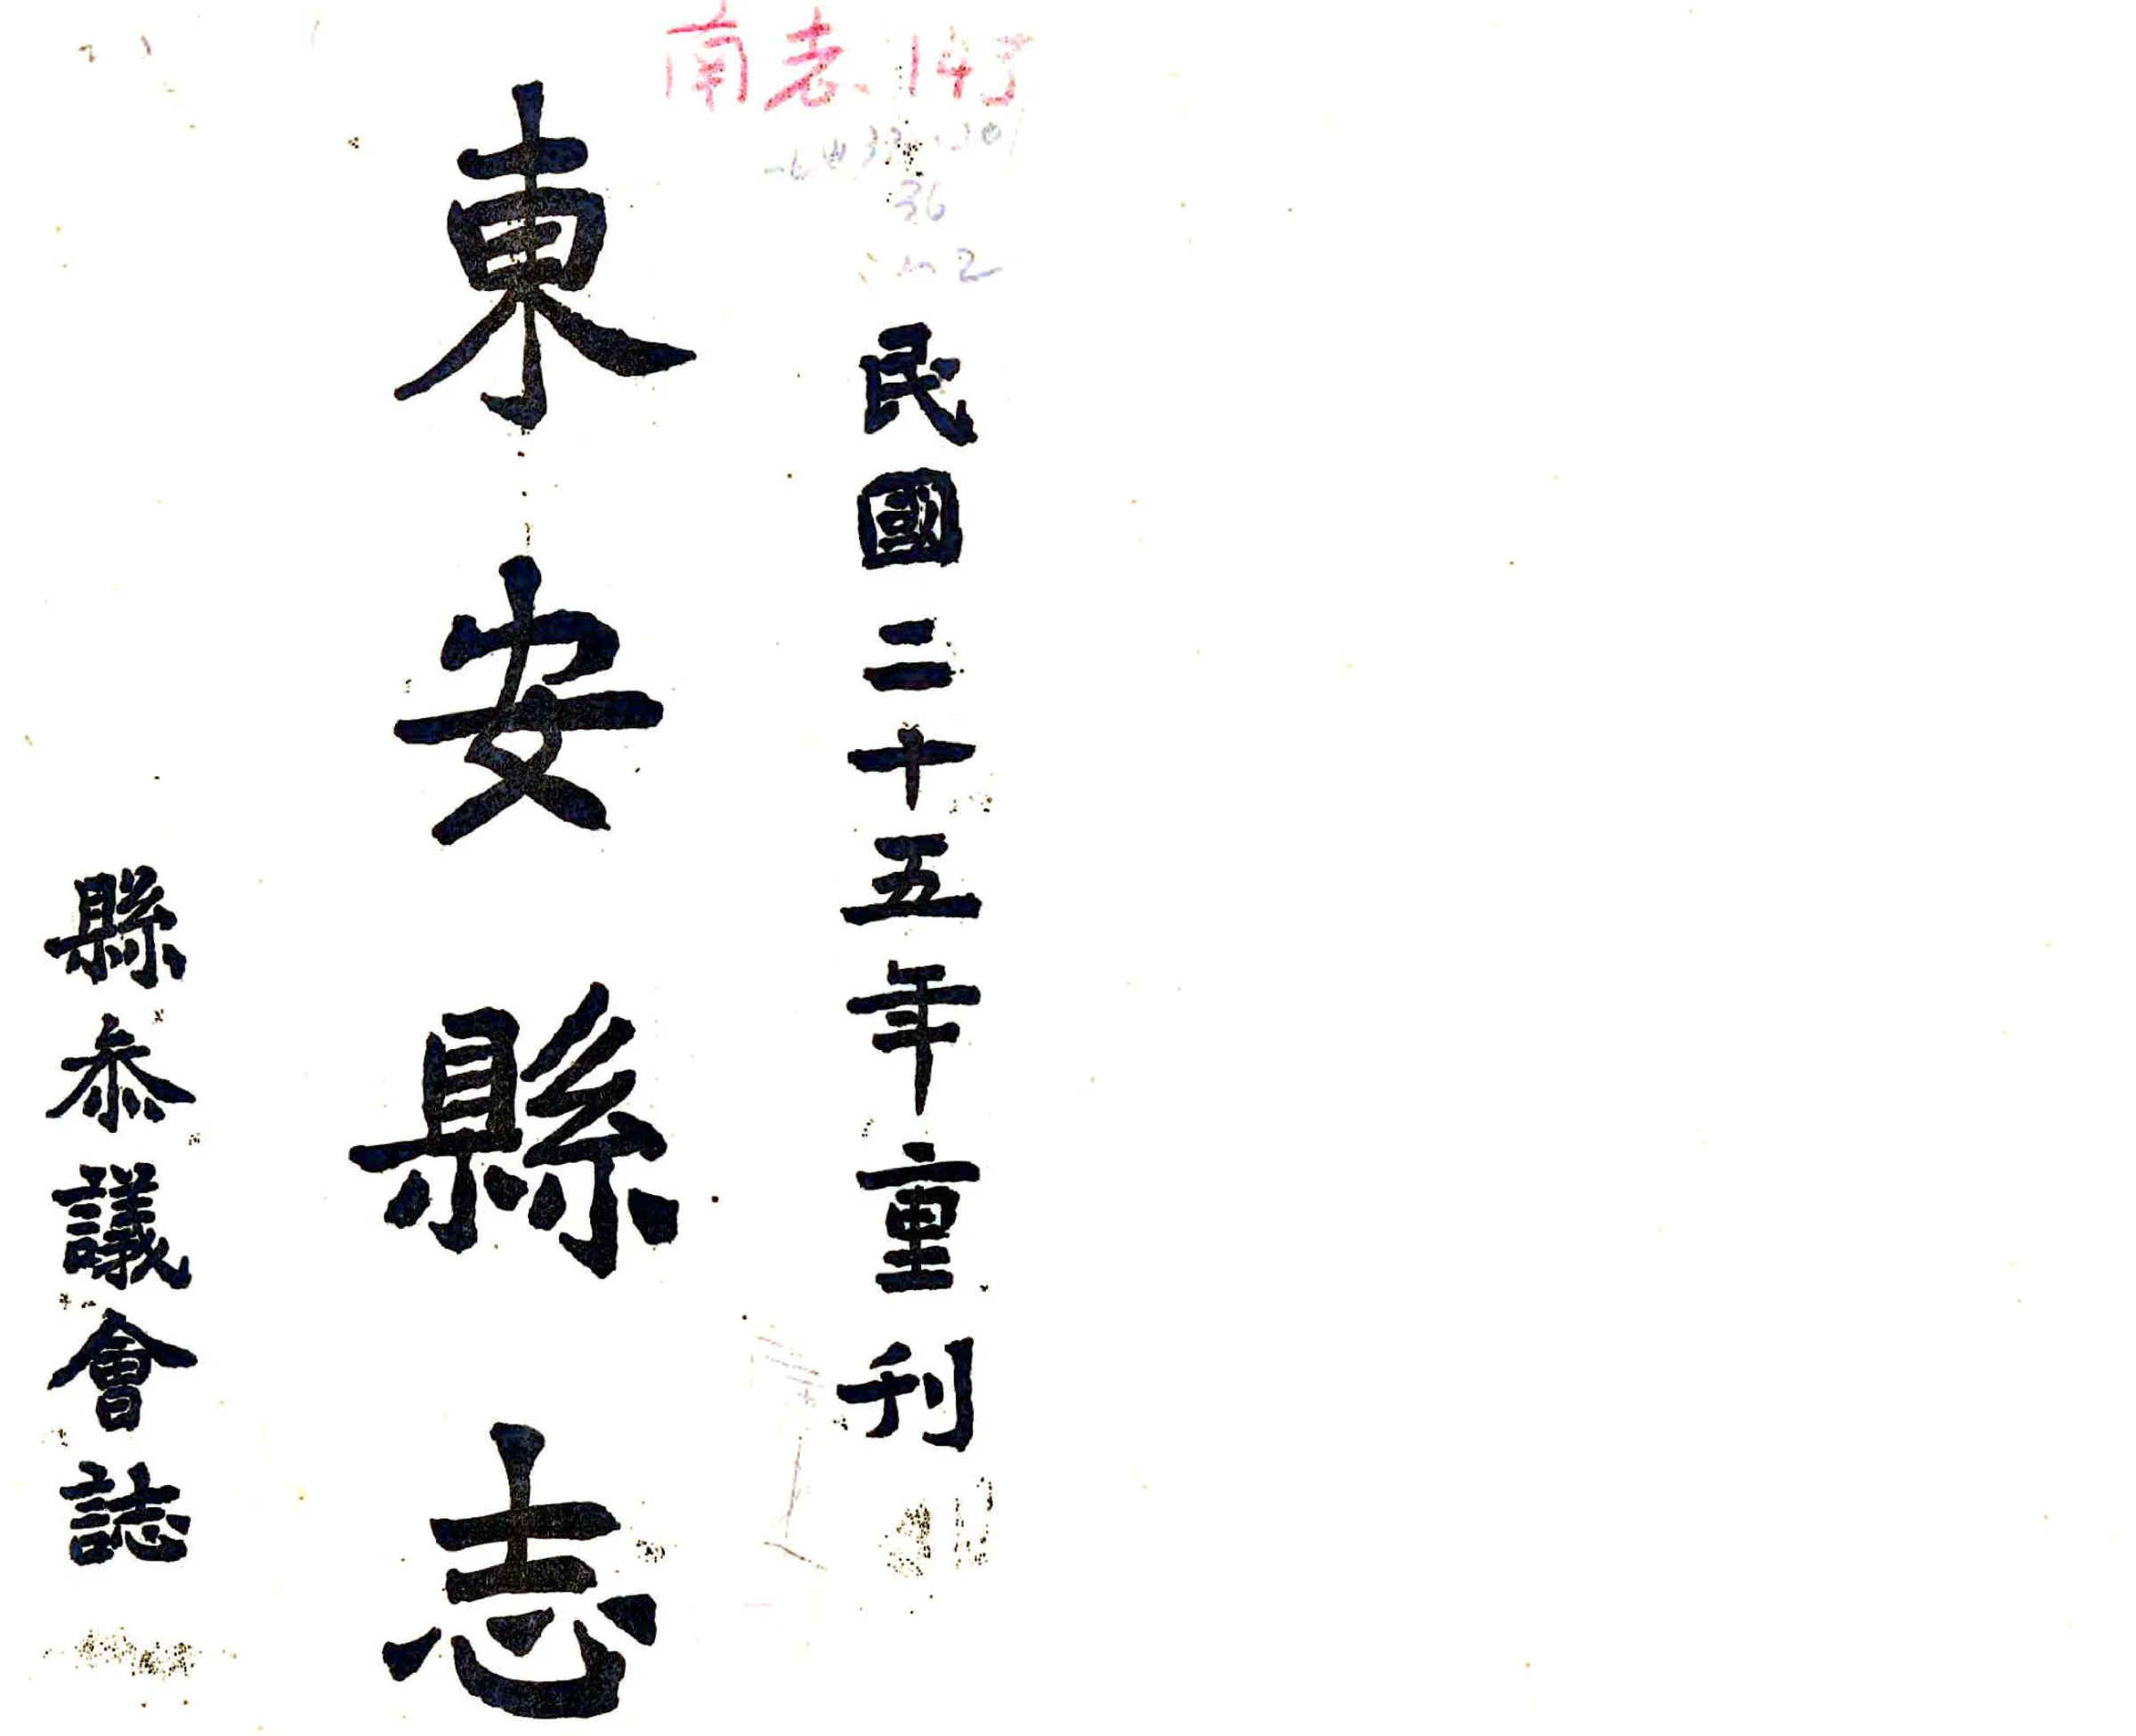 民國二十五年重刊
東安縣志
縣叅議會誌
36
2